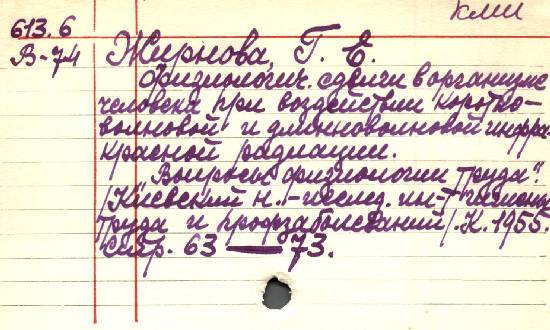 кми
613.6
В-74
Жирнова, Г. Е.
Физиологич. сдвиги в организме
человека при воздействии коротко-
волновой и длинноволновой инфра-
красной радиации.
„Вопросы физиологии труда".
/Киевский н.-исслед. ин-т гигиены
труда и профзаболеваний/. К. 1955.
Стр. 63 — 73.